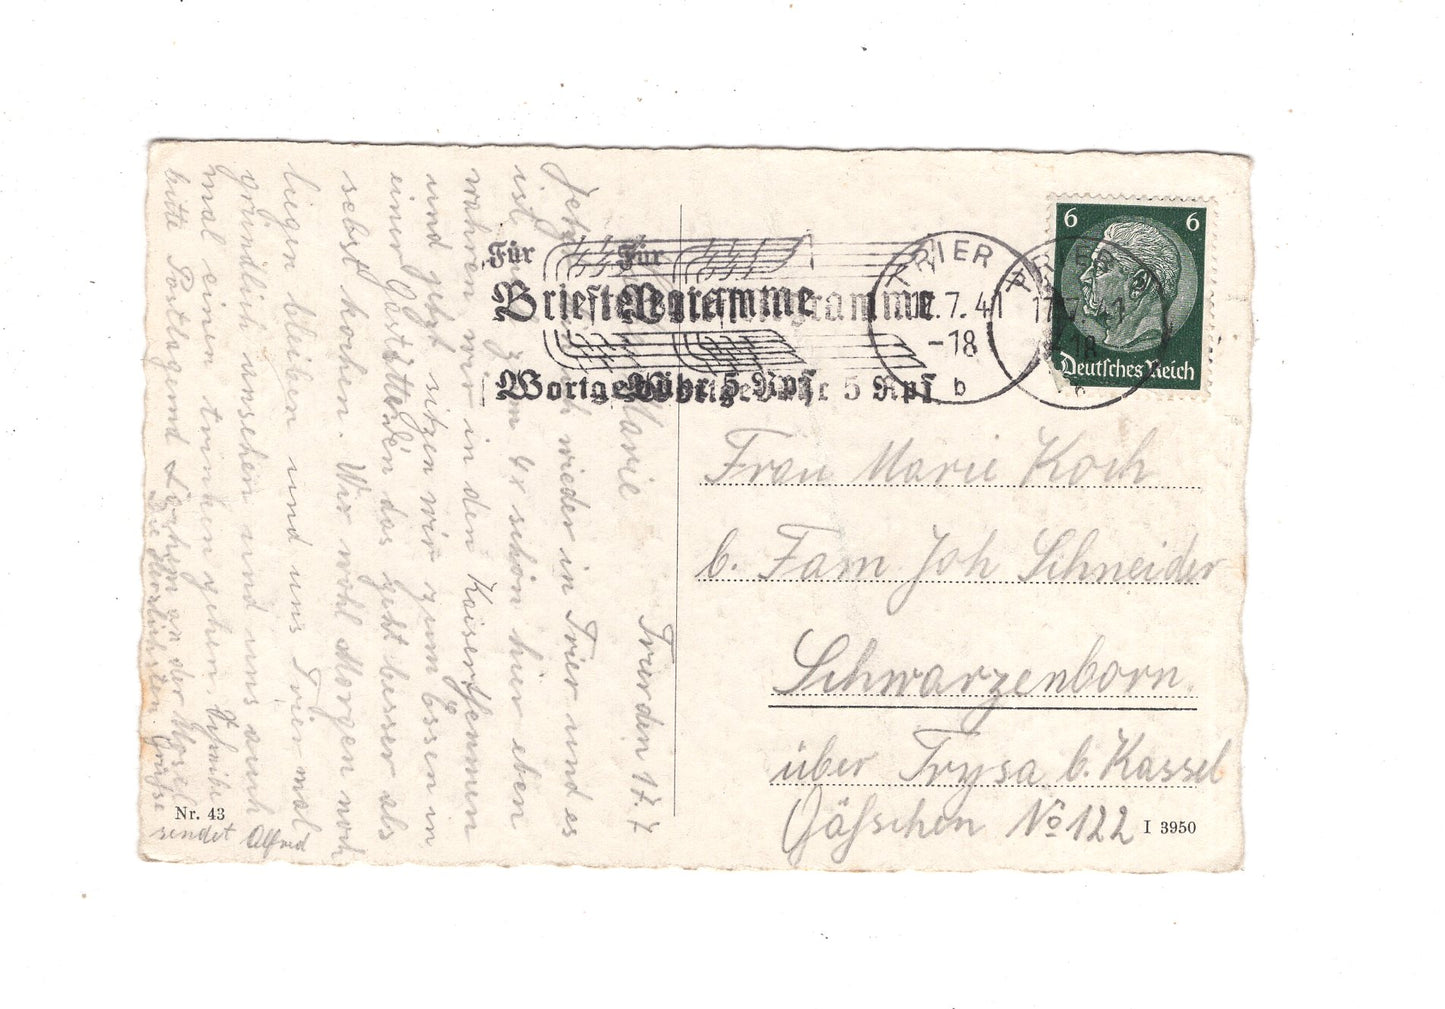 Trier den 17.7
Marie
Jetzt ich wieder in Trier und es
ist 4x schön hier eben
wahren wir in den Kaiserthermen
und jetzt sitzen wir zum Essen in
einer Gaststätte den das geht besser als
selbst kochen. Wir wohl Morgen noch
liegen bleiben und uns Trier mal
gründlich ansehen und uns auch
mal einen trinken gehen. Schreibe
bitte Postlagernd Cochem an der Mosel
Die Herzlichsten Grüße
sendet Alfred
Nr. 43
Für
Brieftelegramme
Wortgebühr 5 Rpf
Für
Brieftelegramme
Wortgebühr 5 Rpf
TRIER
17.7.41
-18
b
TRIER
17.7.41
-18
b
6 6
Deutsches Reich
Frau Marie Koch
b. Fam Joh Schneider
Schwarzenborn
über Trysa b. Kassel
Gäßchen No 122
I 3950